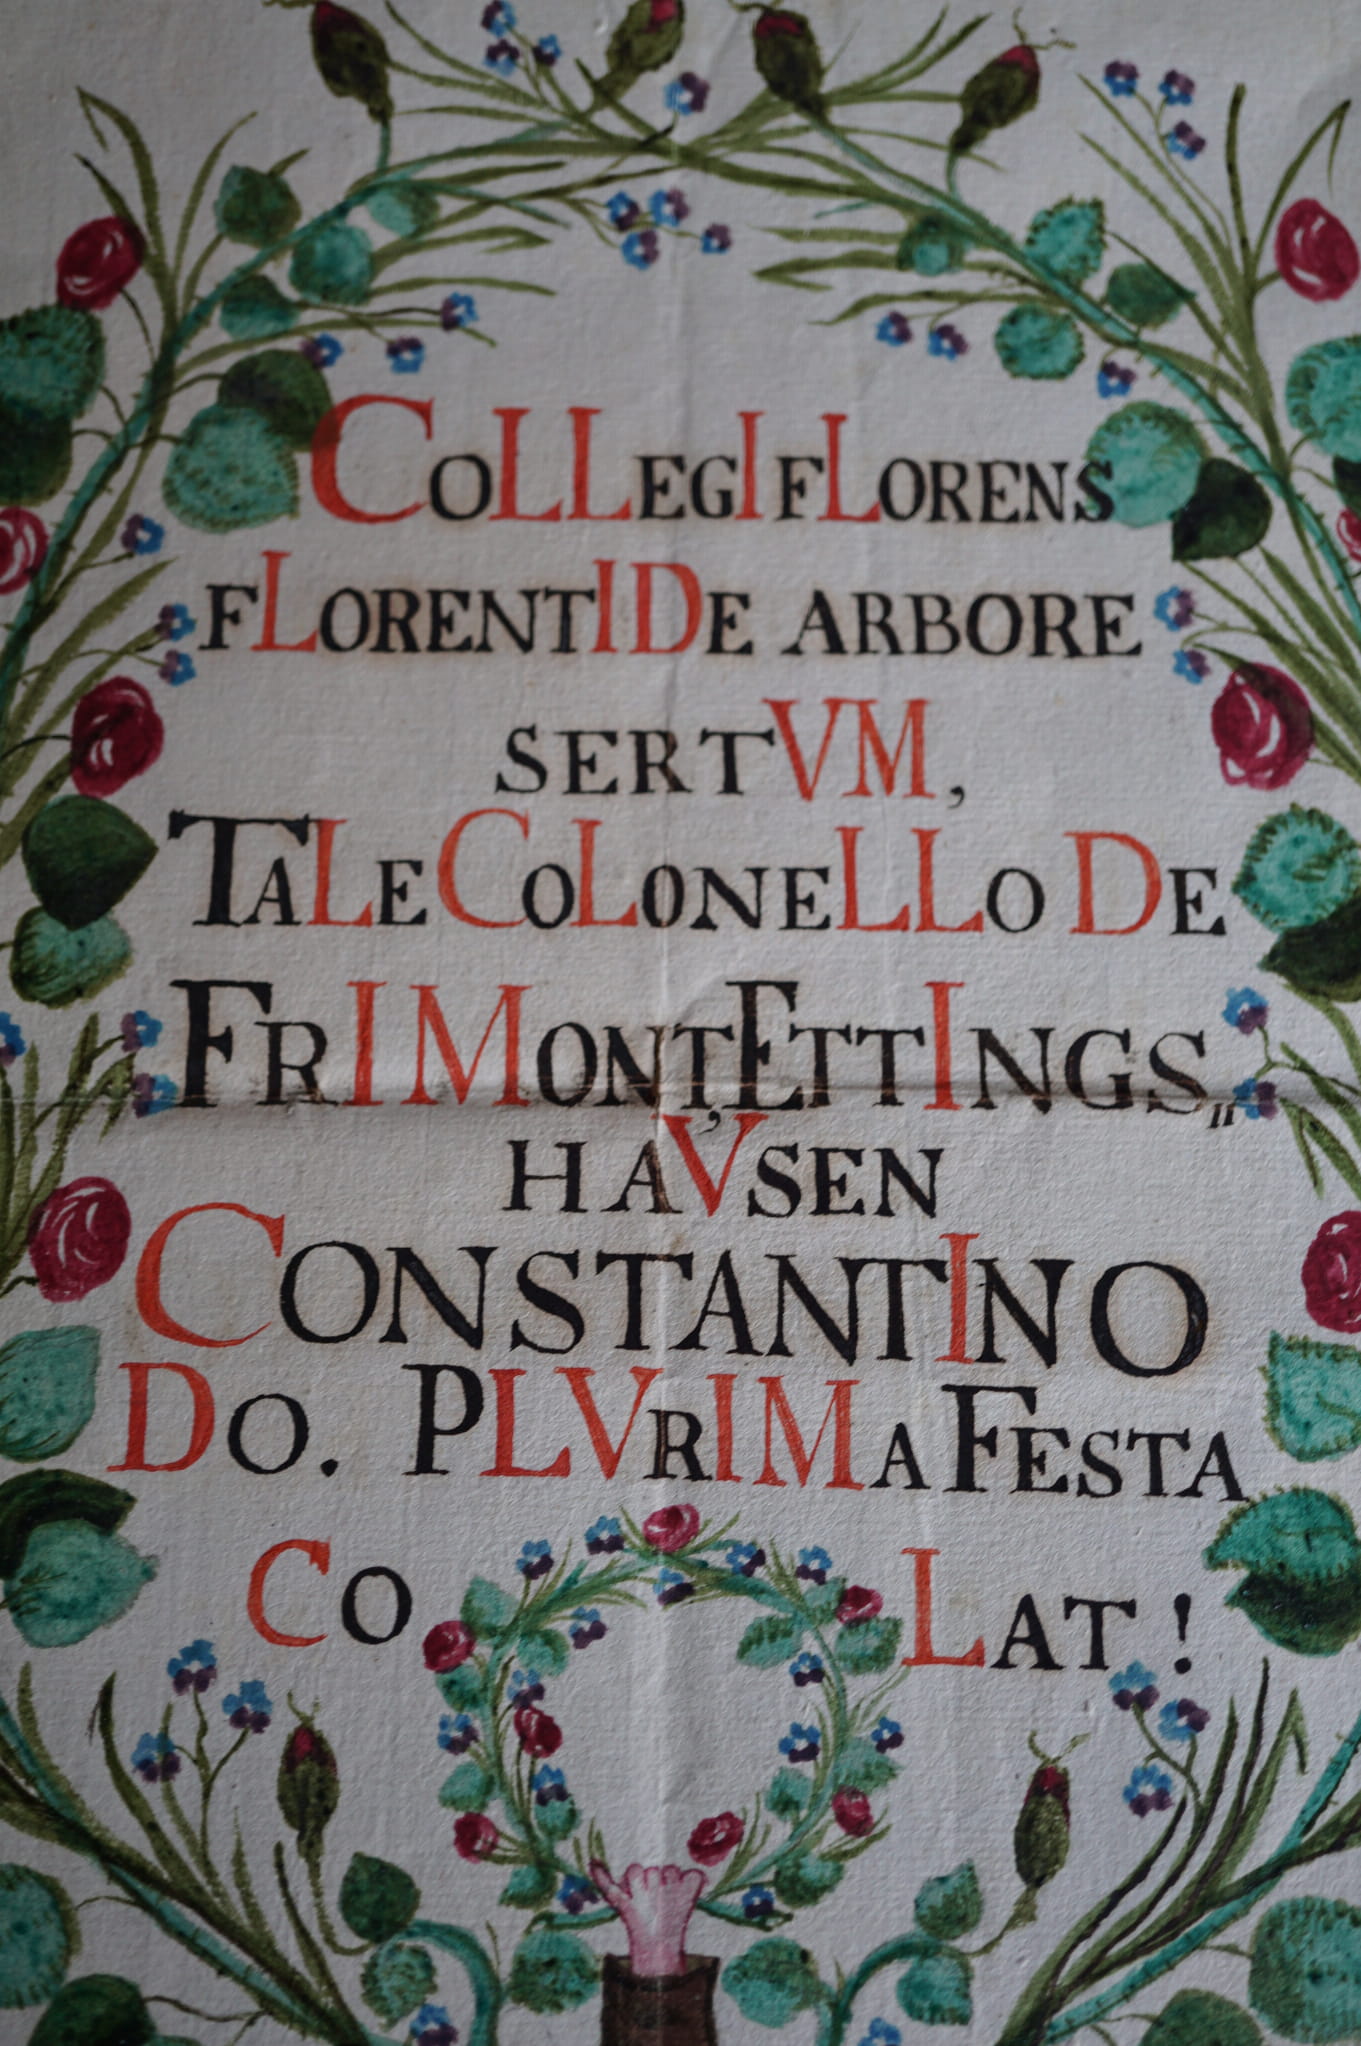 CoLLegI fLorens
fLorentIDe arbore
sertVM,
TaLe CoLoneLLo De
FrIMont, EttIngs„
haVsen
ConstantIno
Do. PLVrIMa Festa
Co Lat!